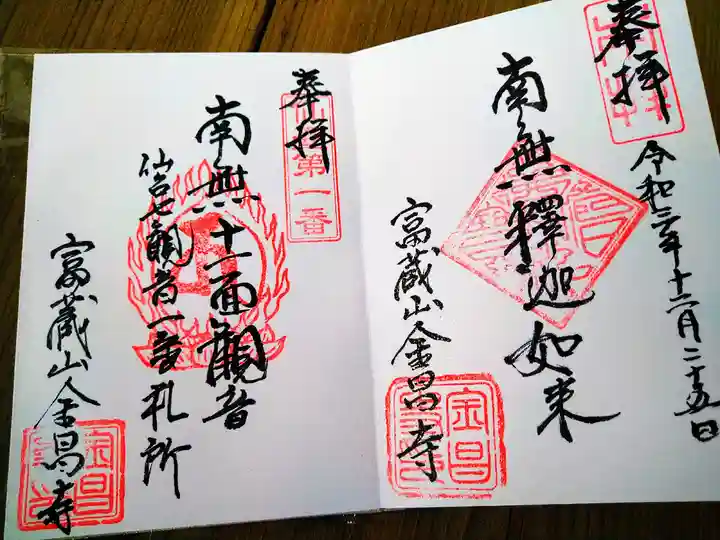 奉拝
令和三年十二月二十五日
南無釋迦如来
富蔵山金昌寺
金昌
奉拝
第一番
南無十一面観音
仙台七観音一番札所
富蔵山金昌寺
金昌